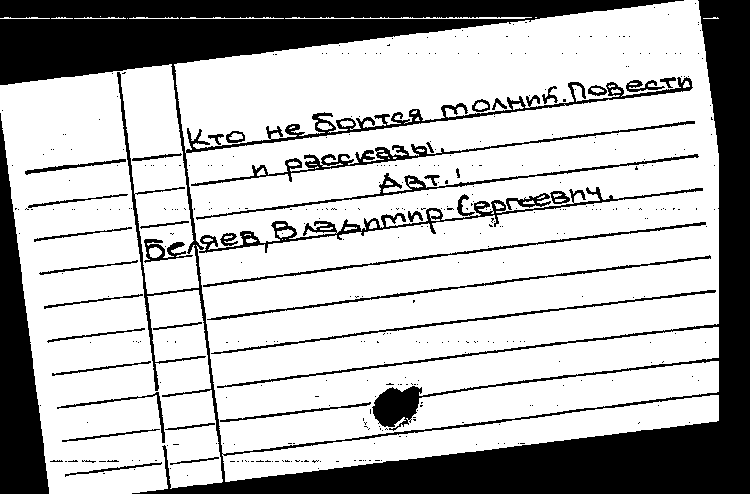 Кто не боится молний. Повести
и рассказы.
Авт.:
Беляев, Владимир Сергеевич.